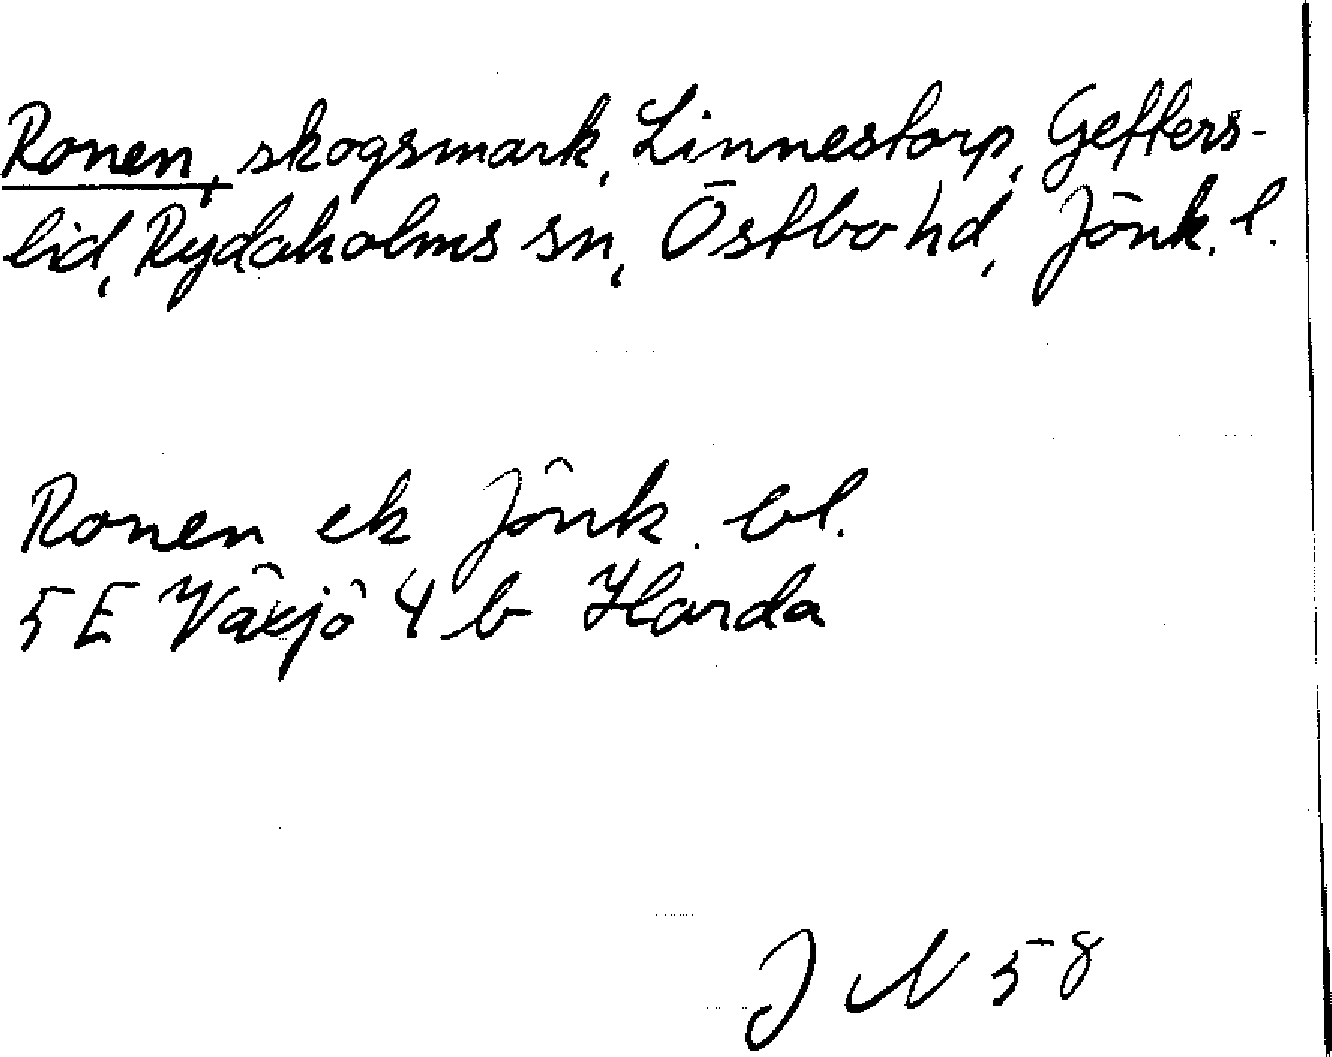 Ronen, skogsmark, Linnestorp, Gefters-
lid, Rydaholms sn, Östbo hd, Jönk. l.
Ronen ek Jönk. bl.
5 E Växjö 4 b Harda
J N 58